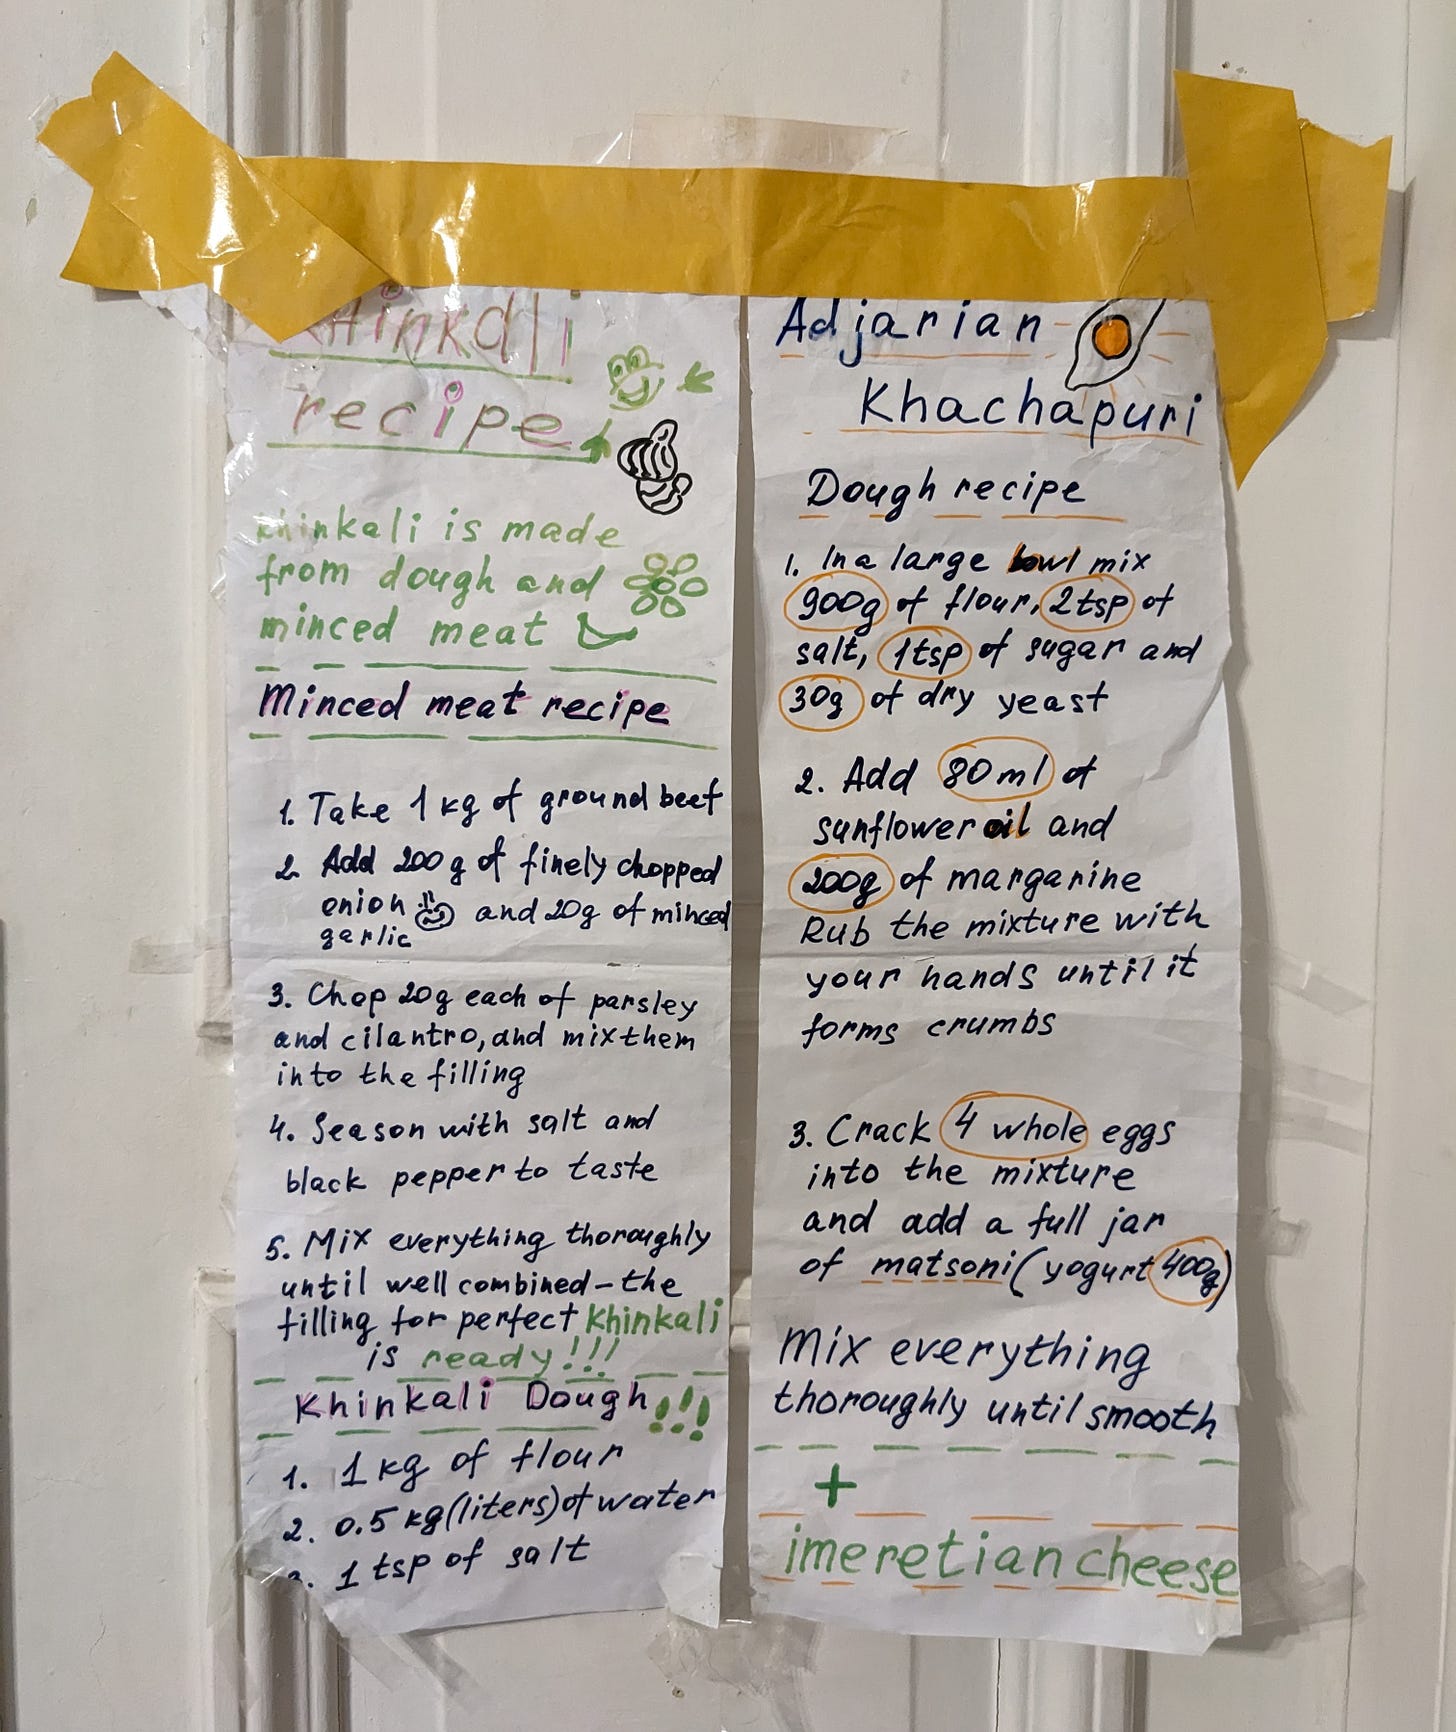 Khinkali
recipe
Khinkali is made
from dough and
minced meat
Minced meat recipe
1. Take 1 kg of ground beef
2. Add 200g of finely chopped
onion and 20g of minced
garlic
3. Chop 20g each of parsley
and cilantro, and mix them
into the filling
4. Season with salt and
black pepper to taste
5. Mix everything thoroughly
until well combined – the
filling for perfect Khinkali
is ready!!!
Khinkali Dough!!!
1. 1 kg of flour
2. 0.5 kg (liters) of water
3. 1 tsp of salt
Adjarian
Khachapuri
Dough recipe
1. In a large bowl mix
900g of flour, 2tsp of
salt, 1tsp of sugar and
30g of dry yeast
2. Add 80ml of
sunflower oil and
200g of margarine
Rub the mixture with
your hands until it
forms crumbs
3. Crack 4 whole eggs
into the mixture
and add a full jar
of matsoni (yogurt 400g)
Mix everything
thoroughly until smooth
+
imeretian cheese